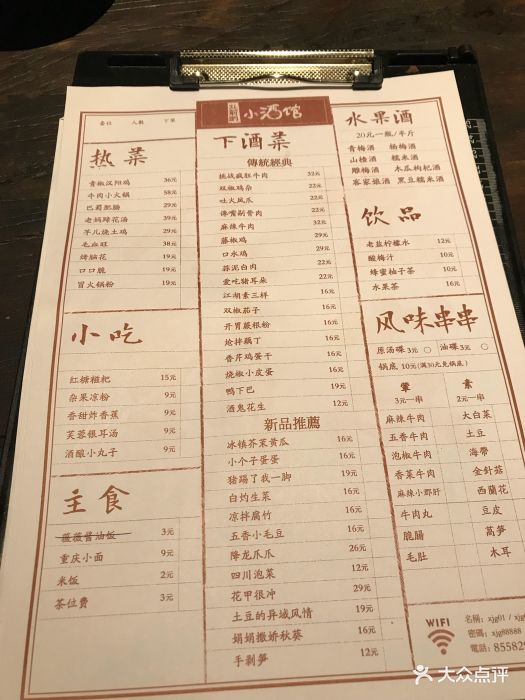 臺位 人數 下單
热菜
青椒汉阳鸡 36元
牛肉小火锅 58元
巴蜀肥肠 39元
老妈蹄花汤 39元
芋儿烧土鸡 39元
毛血旺 38元
烤脑花 19元
口口脆 19元
冒火锅粉 19元
小吃
红糖糍粑 15元
杂果凉粉 9元
香甜炸香蕉 9元
芙蓉银耳汤 9元
酒酿小丸子 9元
主食
薇薇酱油饭 3元
重庆小面 9元
米饭 2元
茶位费 3元
小酒馆
下酒菜
傳統經典
挑战疯狂牛肉 32元
双椒鸡杂 29元
吐火凤爪 22元
馋嘴剔骨肉 22元
麻辣牛肉 32元
藤椒鸡 29元
口水鸡 29元
蒜泥白肉 22元
爱吃猪耳朵 22元
江湖素三样 16元
双椒茄子 16元
开胃蕨根粉 16元
炝拌藕丁 16元
香芹鸡蛋干 16元
烧椒小皮蛋 16元
鸭下巴 19元
酒鬼花生 12元
新品推薦
冰镇芥茉黄瓜 16元
小个子蛋蛋 16元
猪踢了我一脚 19元
白灼生菜 16元
凉拌腐竹 16元
五香小毛豆 16元
降龙爪爪 26元
四川泡菜 12元
花甲很冲 29元
土豆的异域风情 19元
娟娟撒娇秋葵 16元
手剥笋 12元
水果酒
20元一瓶/半斤
青梅酒 杨梅酒
山楂酒 糯米酒
雕梅酒 木瓜枸杞酒
客家娘酒 黑豆糯米酒
饮品
老盐柠檬水 12元
酸梅汁 10元
蜂蜜柚子茶 10元
水果茶 16元
风味串串
原汤碟 3元 ○ 油碟 3元 ○
锅底 10元(满30元免锅底)
荤 素
3元一串 2元一串
麻辣牛肉 大白菜
五香牛肉 土豆
泡椒牛肉 海帶
香菜牛肉 金針菇
麻辣小郡肝 西蘭花
牛肉丸 豆皮
脆腸 萵笋
毛肚 木耳
WIFI
名稱：xjg01 / xjg
密碼：xjg88888
電話：85582
大众点评